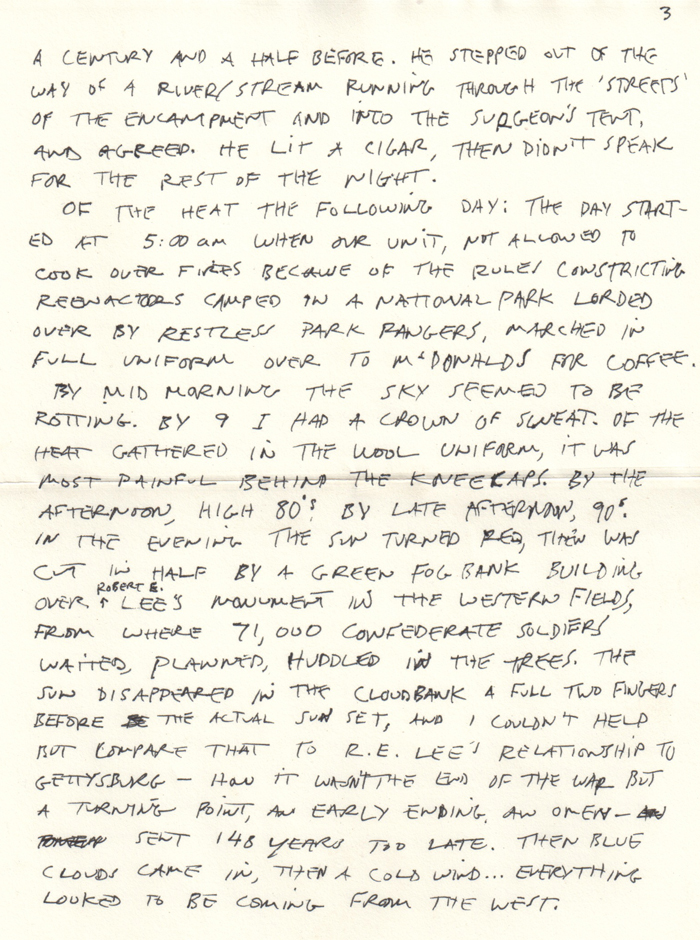 3
A CENTURY AND A HALF BEFORE. HE STEPPED OUT OF THE
WAY OF A RIVER/STREAM RUNNING THROUGH THE 'STREETS'
OF THE ENCAMPMENT AND INTO THE SURGEON'S TENT,
AND AGREED. HE LIT A CIGAR, THEN DIDN'T SPEAK
FOR THE REST OF THE NIGHT.
OF THE HEAT THE FOLLOWING DAY: THE DAY START-
ED AT 5:00 am WHEN OUR UNIT, NOT ALLOWED TO
COOK OVER FIRES BECAUSE OF THE RULES CONSTRICTING
REENACTORS CAMPED IN A NATIONAL PARK LORDED
OVER BY RESTLESS PARK RANGERS, MARCHED IN
FULL UNIFORM OVER TO McDONALDS FOR COFFEE.
BY MID MORNING THE SKY SEEMED TO BE
ROTTING. BY 9 I HAD A CROWN OF SWEAT. OF THE
HEAT GATHERED IN THE WOOL UNIFORM, IT WAS
MOST PAINFUL BEHIND THE KNEECAPS. BY THE
AFTERNOON, HIGH 80's. BY LATE AFTERNOON, 90s.
IN THE EVENING THE SUN TURNED RED, THEN WAS
CUT IN HALF BY A GREEN FOG BANK BUILDING
OVER ROBERT E. LEE'S MONUMENT IN THE WESTERN FIELDS,
FROM WHERE 71,000 CONFEDERATE SOLDIERS
WAITED, PLANNED, HUDDLED IN THE TREES. THE
SUN DISAPPEARED IN THE CLOUDBANK A FULL TWO FINGERS
BEFORE THE ACTUAL SUN SET, AND I COULDN'T HELP
BUT COMPARE THAT TO R.E. LEE'S RELATIONSHIP TO
GETTYSBURG — HOW IT WASN'T THE END OF THE WAR BUT
A TURNING POINT, AN EARLY ENDING, AN OMEN —
SENT 148 YEARS TOO LATE. THEN BLUE
CLOUDS CAME IN, THEN A COLD WIND... EVERYTHING
LOOKED TO BE COMING FROM THE WEST.